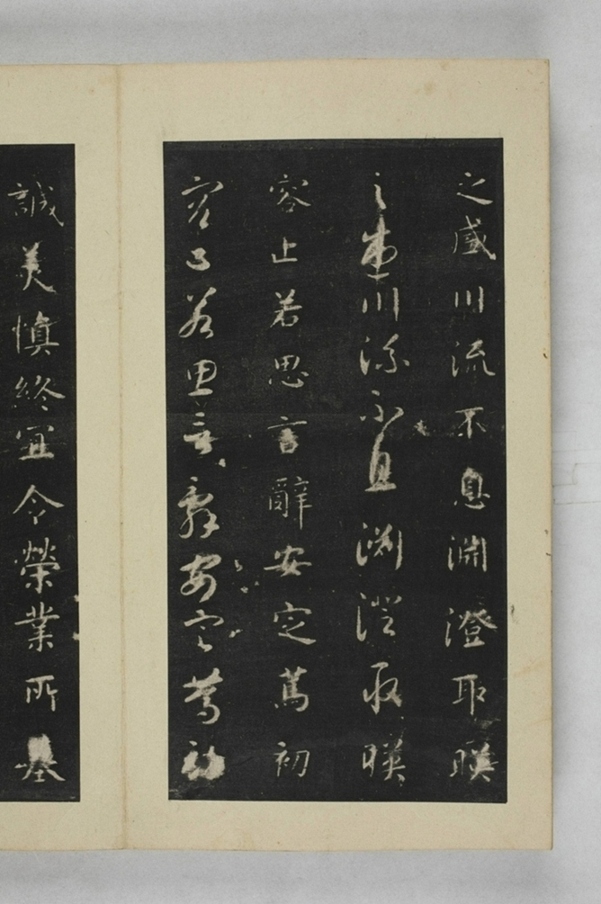 之盛川流不息淵澄取暎
之盛川流不息淵澄取暎
容止若思言辭安定篤初
容止若思言辭安定篤初
誠美慎終宜令榮業所基